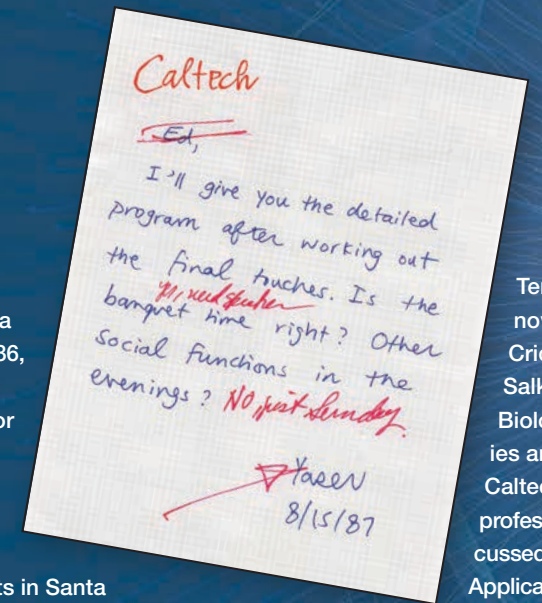 Caltech
Ed,
I'll give you the detailed
program after working out
the final touches. Is the
banquet time right? Other
social functions in the
evenings? No, just Sunday.
Yaser
8/15/87
a
36,
or
ts in Santa
Ter
nov
Cric
Salk
Biolo
ies an
Caltec
profes
cussed
Applica